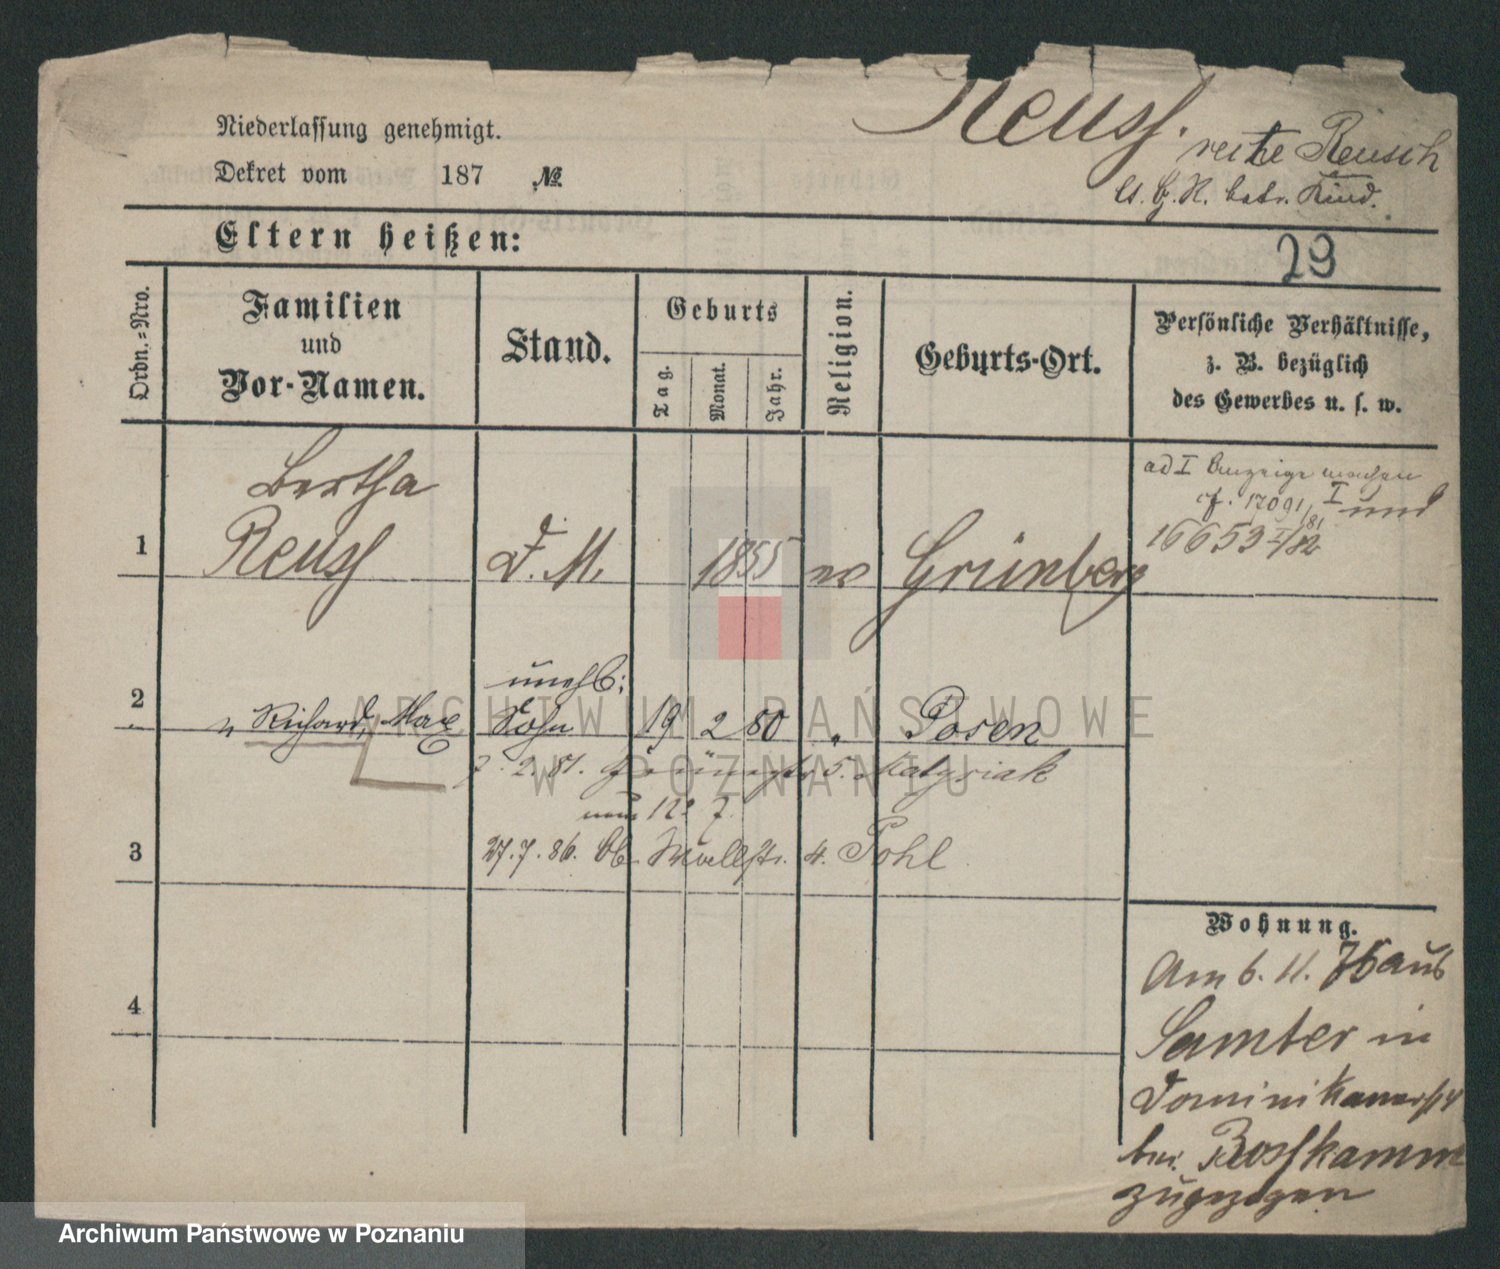 Reusch.
recte Reusch
Niederlassung genehmigt.
Dekret vom 187 №
Eltern heißen:
29
Ordn.-Nro.
Familien
und
Vor-Namen.
Stand.
Geburts
Tag.
Monat.
Jahr.
Religion.
Geburts-Ort.
Persönliche Verhältnisse,
z. B. bezüglich
des Gewerbes u. s. w.
ad I Anzeige
cf. 17091 I/81 und
16653 I/82
Bertha
1 Reusch D. M. 1855 Grünberg
unehl:
2 " Richard, Max Sohn 19 2 80 " Posen
7. 2. 81. 5. Matysiak
3 27. 7. 86. Wallstr. 4. Pohl
4
Wohnung.
Am 6. 11. 76 aus
Samter in
Dominikanerst 4
bei
zugezogen
ARCHIWUM PAŃSTWOWE
W POZNANIU
Archiwum Państwowe w Poznaniu